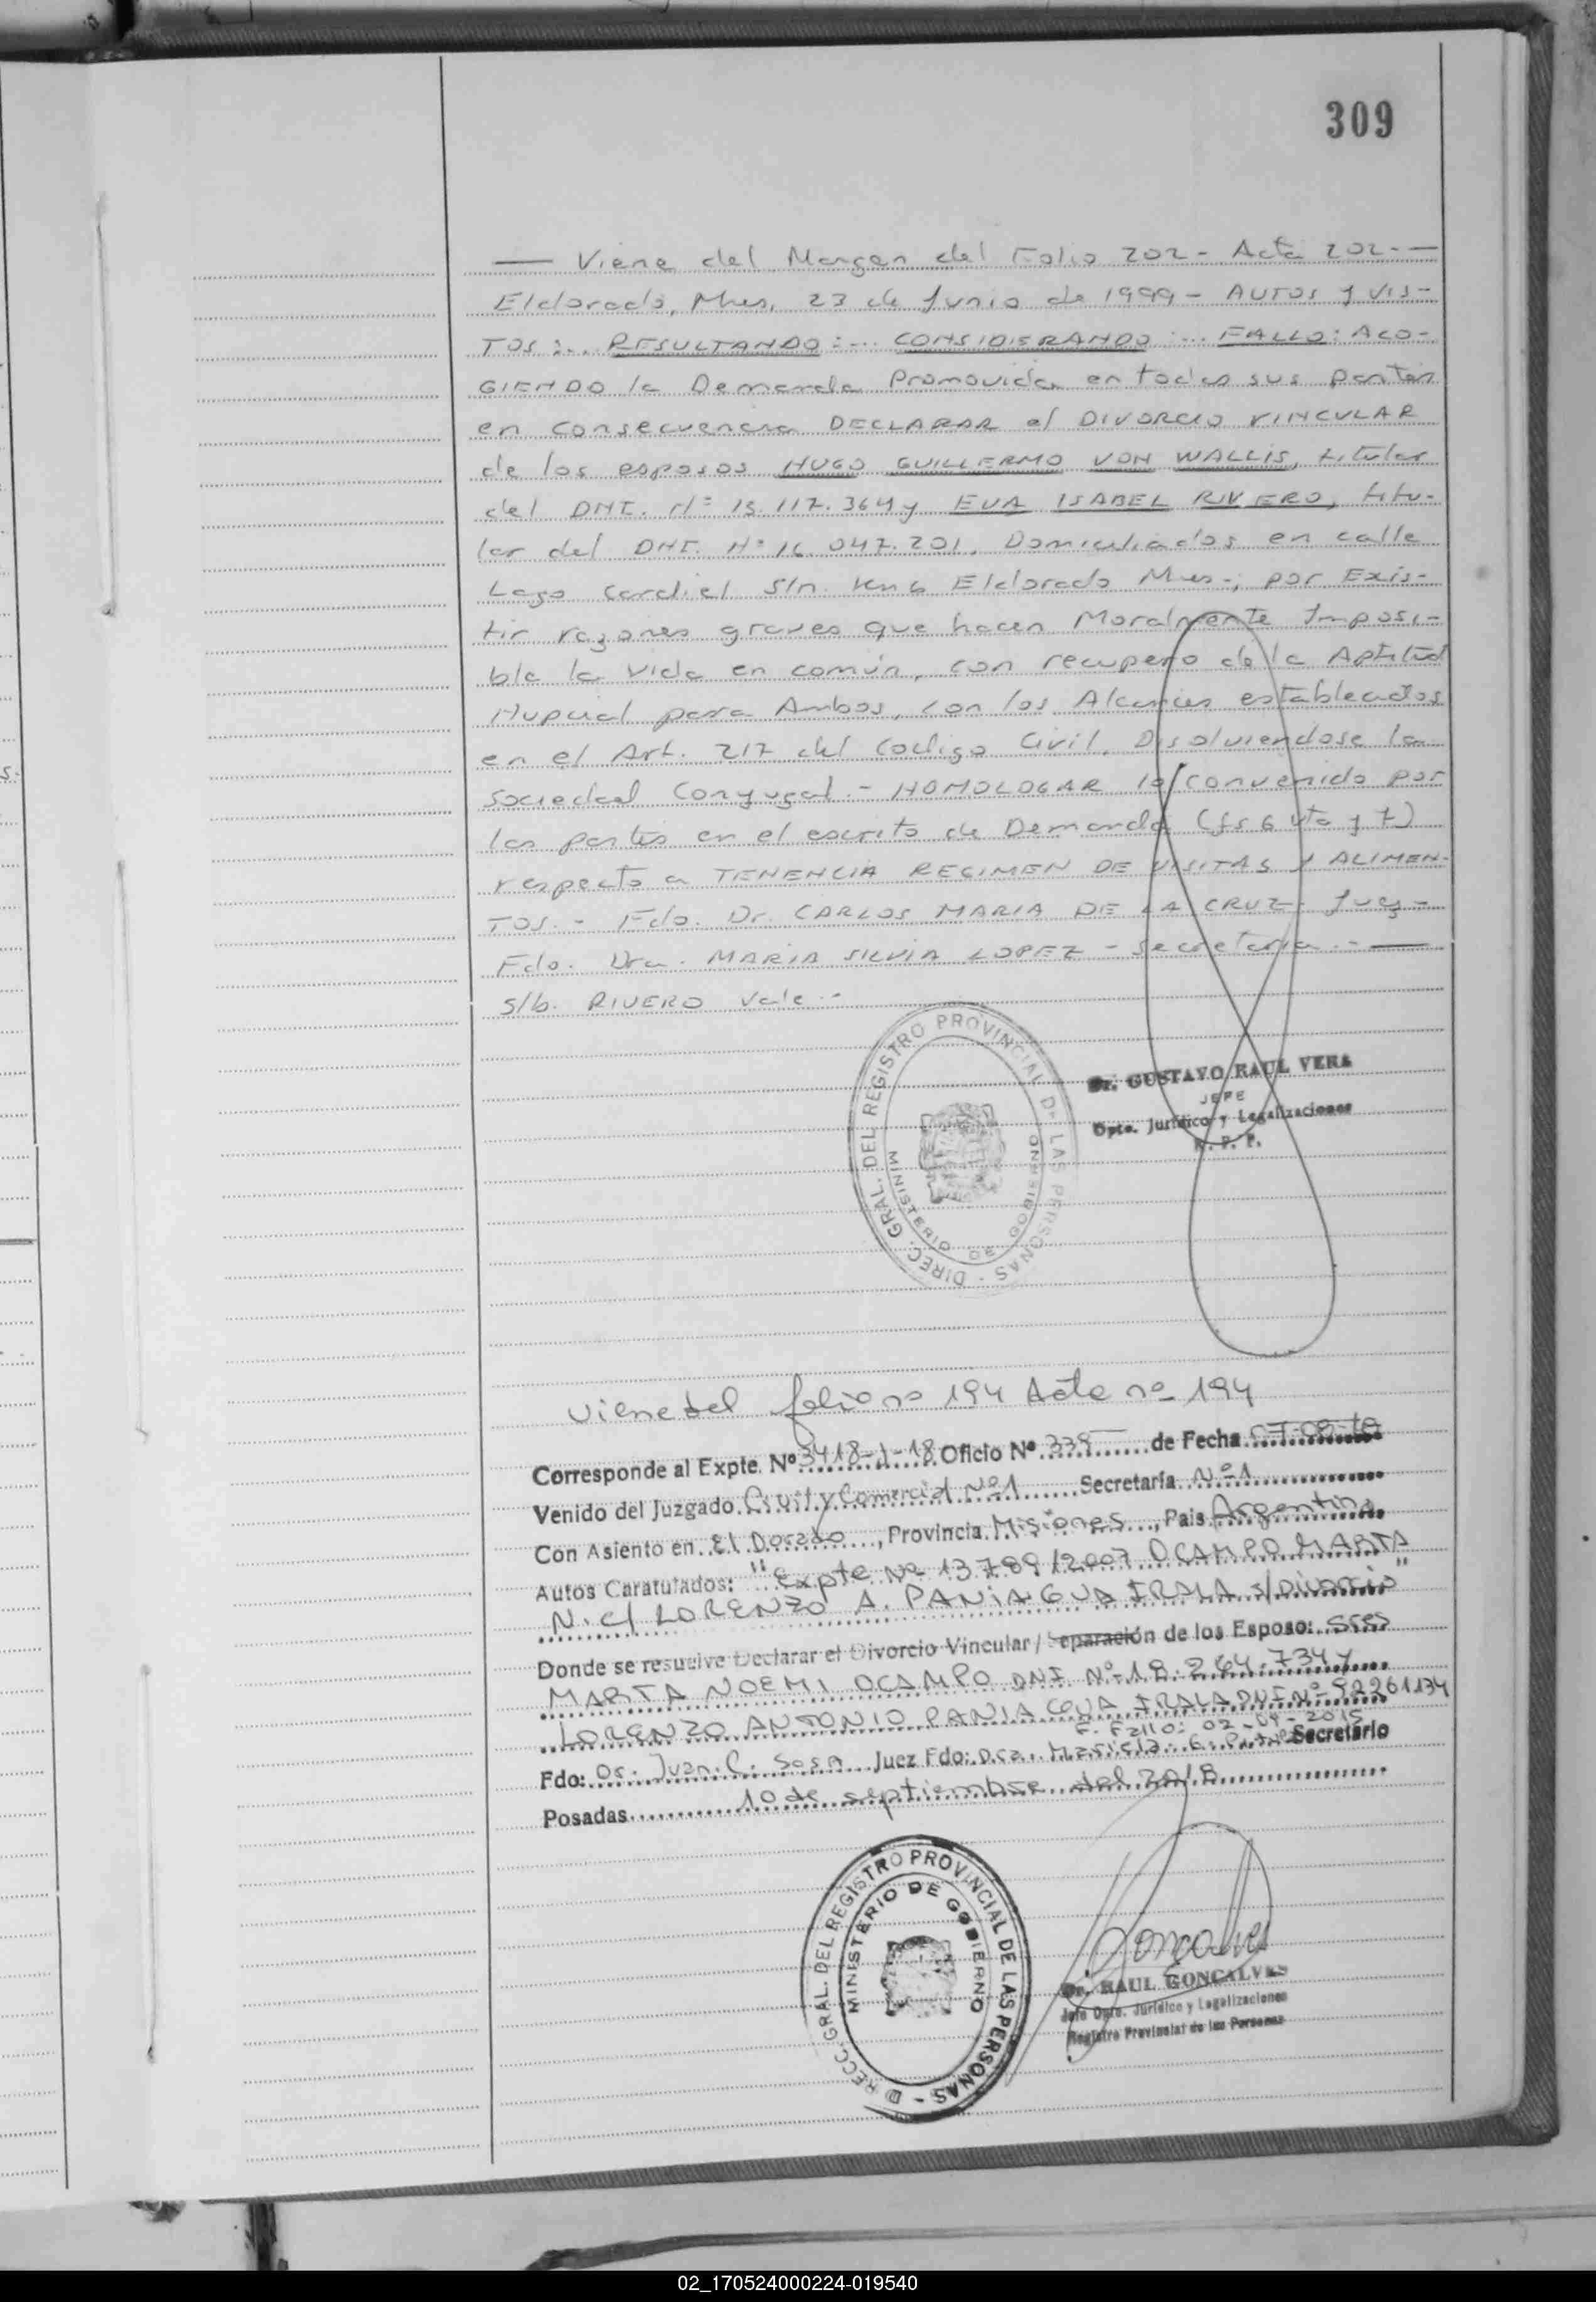 309
— Viene del Margen del Folio 202 - Acta 202 - —
Eldorado, Mnes, 23 de Junio de 1999 - AUTOS Y VIS-
TOS:... RESULTANDO:... CONSIDERANDO:... FALLO: ACO-
GIENDO la Demanda Promovida en todas sus partes
en consecuencia DECLARAR el DIVORCIO VINCULAR
de los esposos HUGO GUILLERMO VON WALLIS, titular
del DNI. Nº 13.117.364 y EVA ISABEL RIVERO, titu-
lar del DNI. Nº 16.047.201, Domiciliados en calle
Lago Cardiel S/n. Km 6 Eldorado Mnes-; por Exis-
tir razones graves que hacen Moralmente Imposi-
ble la vida en común, con recupero de la Aptitud
Nupcial para Ambos, con los Alcances establecidos
en el Art. 217 del Codigo Civil. Disolviendose la
sociedad Conyugal. - HOMOLOGAR lo convenido por
las partes en el escrito de Demanda (fs 6 vta y 7)
respecto a TENENCIA REGIMEN DE VISITAS Y ALIMEN-
TOS. - Fdo. Dr. CARLOS MARIA DE LA CRUZ - Juez -
Fdo. Dra. MARIA SILVIA LOPEZ - Secretaria. - —
S/b. RIVERO Vale. -
DIREC. GRAL. DEL REGISTRO PROVINCIAL DE LAS PERSONAS -
MINISTERIO DE GOBIERNO
Dr. GUSTAVO RAUL VERA
JEFE
Dpto. Jurídico y Legalizaciones
R. P. P.
Viene del folio nº 194 Acta nº 194
Corresponde al Expte. Nº 3418-J-18 Oficio Nº 339 de Fecha 07-08-18
Venido del Juzgado Civil y Comercial Nº 1 Secretaría Nº 1
Con Asiento en El Dorado, Provincia Misiones, Pais Argentina
Autos Caratulados: "Expte Nº 13789/2007 OCAMPO MARTA
N. c/ LORENZO A. PANIAGUA IRALA s/Divorcio"
Donde se resuelve Declarar el Divorcio Vincular / Separación de los Esposo: sres
MARTA NOEMI OCAMPO DNI Nº 18.264.734 y
LORENZO ANTONIO PANIAGUA IRALA DNI Nº 92261134
F. Fallo: 02-09-2015
Fdo: Dr. Juan C. Sosa Juez Fdo: Dra. Mariela G. Secretario
Posadas 10 de septiembre del 2018
DIRECC. GRAL. DEL REGISTRO PROVINCIAL DE LAS PERSONAS -
MINISTERIO DE GOBIERNO
Goncalves
Dr. RAUL GONCALVES
Jefe Dpto. Jurídico y Legalizaciones
Registro Provincial de las Personas
02_170524000224-019540